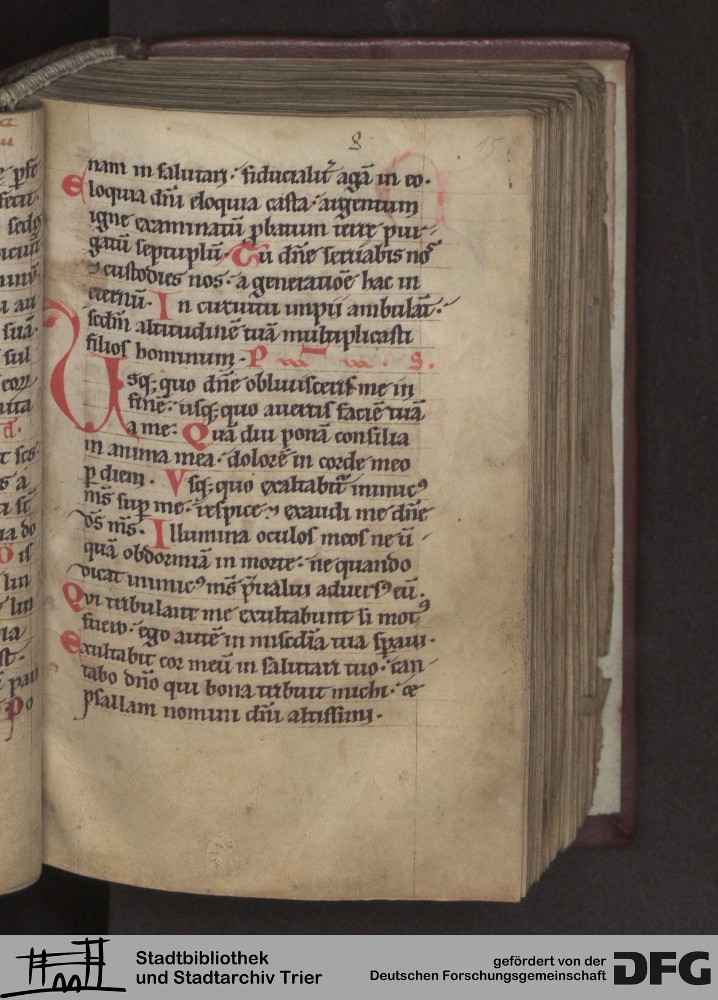 8
15
nam in salutarj· fiducialit̄ agā in eo·
Eloquia dn̄i eloquia casta· argentum
igne examinatū ꝓbatum terre pur-
gatū septuplū· Tu dn̄e seruabis nos
⁊ custodies nos· a generatiōe hac in
eternū· In cırcuitu impij ambulāt·
scd̄m altitudinē tuā multiplicasti
filios hominum· P S.
Vsq; quo dn̄e obliuisceris me in
finē· usq; quo auertis faciē tuā
a me· Quā diu ponā consilia
in anima mea· dolorē in corde meo
ꝑ diem· Vsq; quo exaltabit᷑ inimicꝰ
ms̄ suꝑ me· respice ⁊ exaudi me dn̄e
ds̄ ms̄· Illumina oculos meos ne ū-
quā obdormiā in morte· ne quando
dicat inimicꝰ ms̄ p̄ualui aduersꝰ eū·
Qui tribulant me exultabunt si motꝰ
fuero· ego autē in mis̄dia tua sꝑaui·
Exultabit cor meū in salutari tuo· can-
tabo dn̄o qui bona tribuit michi· ⁊
psallam nomini dn̄i altissimi·
Stadtbibliothek
und Stadtarchiv Trier
gefördert von der
Deutschen Forschungsgemeinschaft
DFG